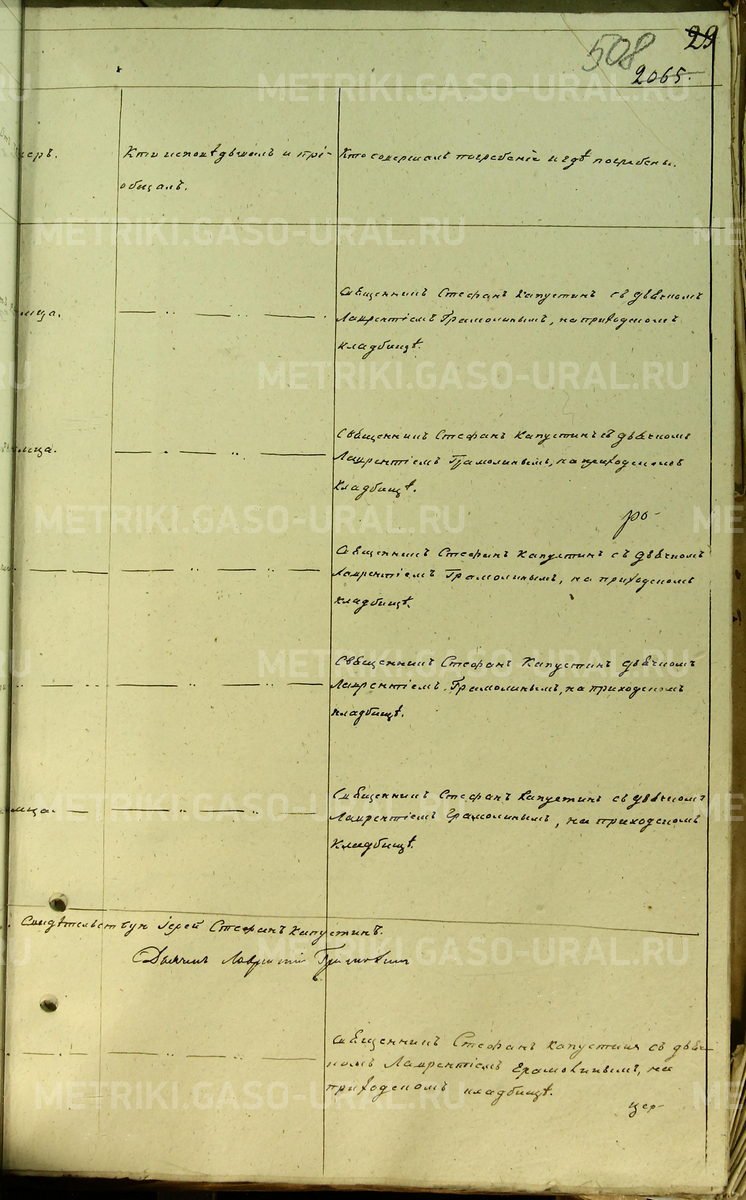 29
508
2065.
церъ.
Кто исповѣдывалъ и прі-
общалъ.
Кто совершалъ погребеніе и гдѣ погребены.
Священникъ Стефанъ Капустинъ съ дьячкомъ
Лаврентіемъ Грамолинымъ, на приходскомъ
кладбищѣ.
Священникъ Стефанъ Капустинъ съ дьячкомъ
Лаврентіемъ Грамолинымъ, на приходскомъ
кладбищѣ.
ро-
Священникъ Стефанъ Капустинъ съ дьячкомъ
Лаврентіемъ Грамолинымъ, на приходскомъ
кладбищѣ.
Священникъ Стефанъ Капустинъ дьячкомъ
Лаврентіемъ Грамолинымъ, на приходскомъ
кладбищѣ.
Священникъ Стефанъ Капустинъ съ дьячкомъ
Лаврентіемъ Грамолинымъ, на приходскомъ
кладбищѣ.
Іерей Стефанъ Капустинъ.
Дьячекъ Лаврентій
Священникъ Стефанъ Капустинъ съ дьяч-
комъ Лаврентіемъ на
приходскомъ кладбищѣ.
цер-
METRIKI.GASO-URAL.RU